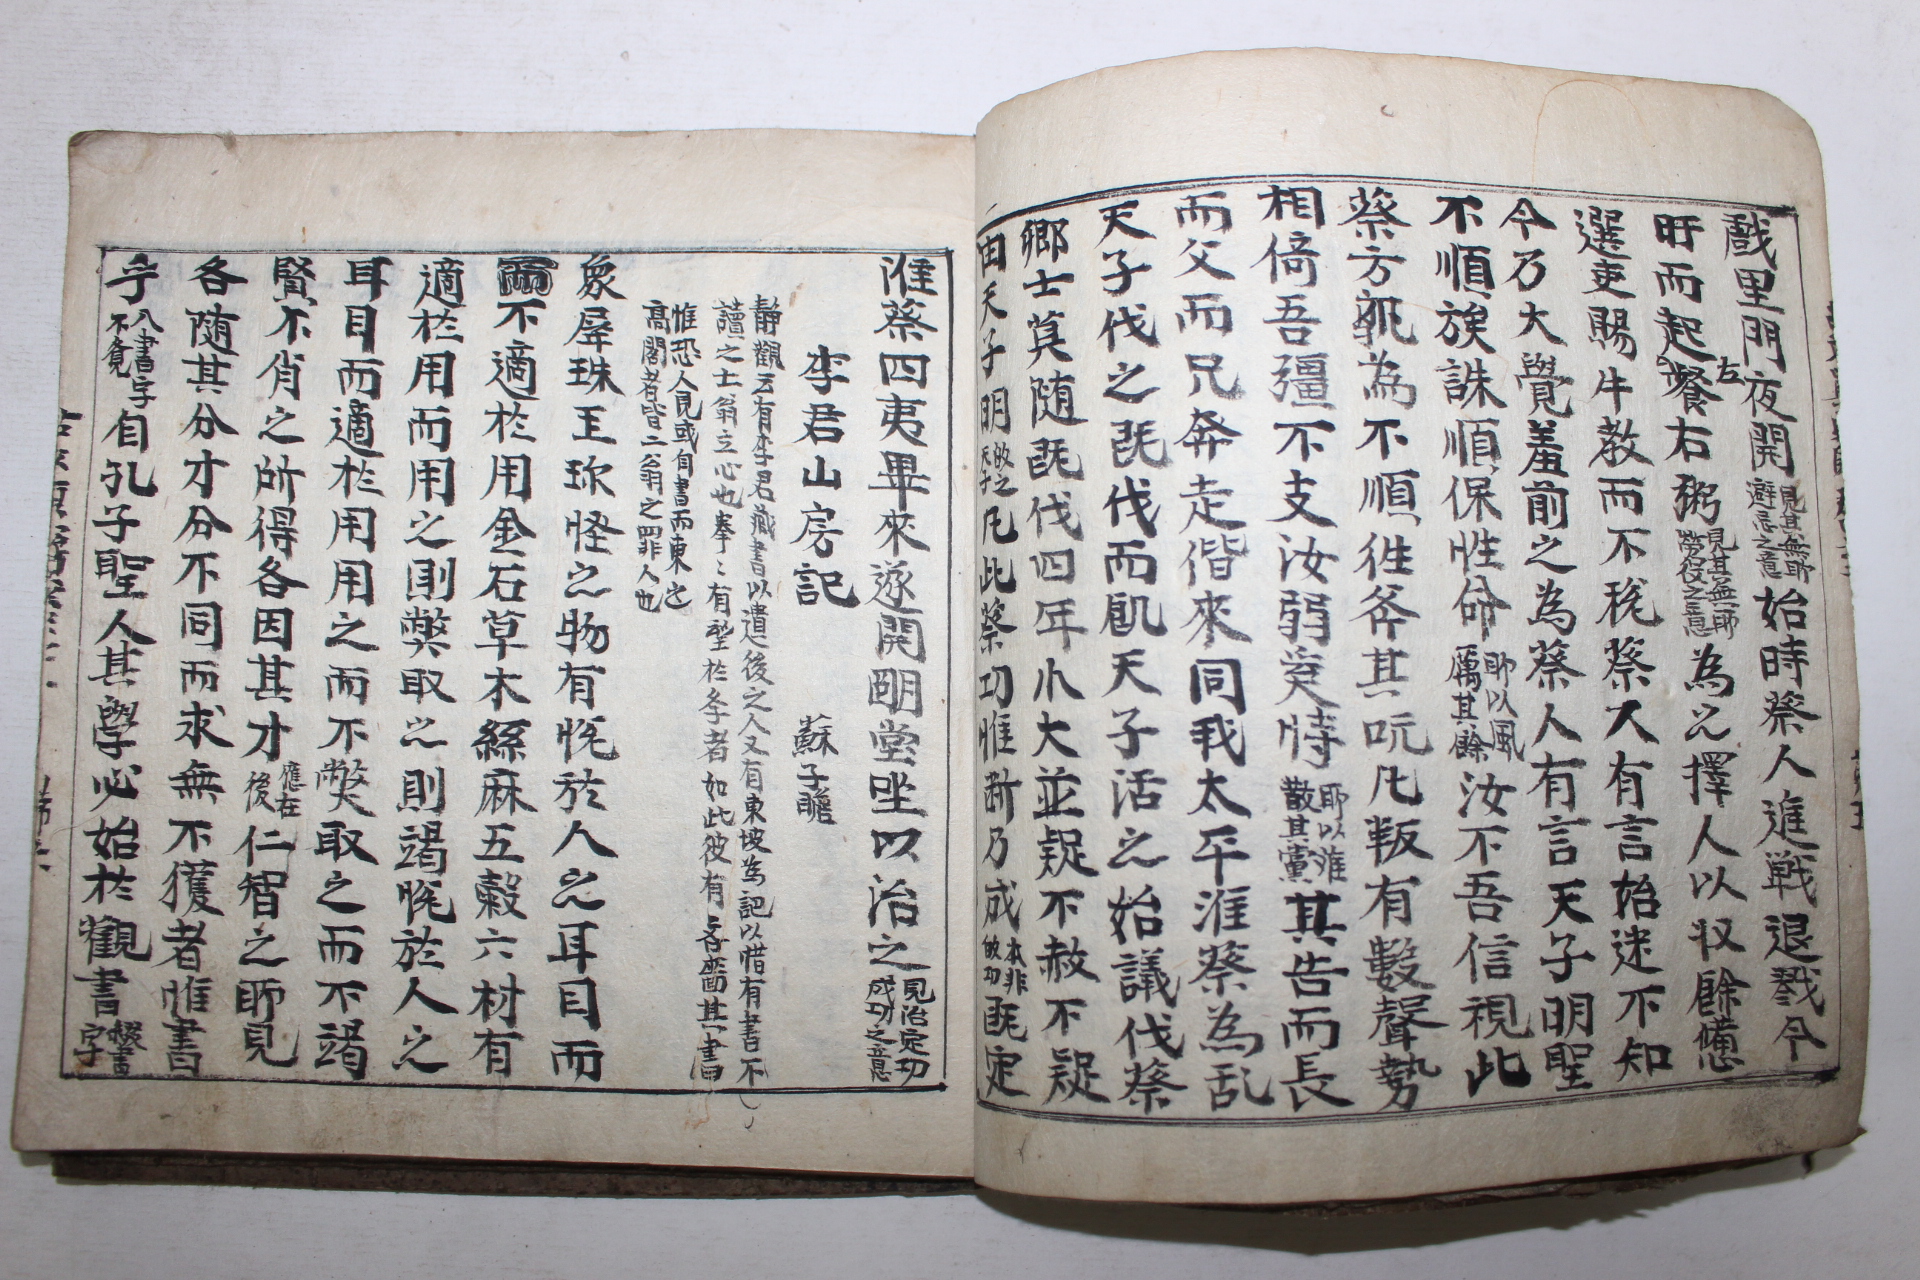 戲里門夜開見其無耶避忌之意始時蔡人進戰退戮今
旰而起左飱右粥見其無耶勞役之意為之擇人以收餘憊
選吏賜牛教而不稅蔡人有言始迷不知
今乃大覺羞前之為蔡人有言天子明聖
不順族誅順保性命耶以風厲其餘汝不吾信視此
蔡方孰為不順往斧其吭凡叛有數聲勢
相倚吾彊不支汝弱奚恃耶以淮散其黨其告而長
而父而兄奔走偕來同我太平淮蔡為乱
天子伐之既伐而飢天子活之始議伐蔡
卿士莫随既伐四年小大並疑不赦不疑
由天子明天子凡此蔡功惟断乃成既定
淮蔡四夷畢來遂開明堂坐以治之見治定功成功之意
李君山房記　蘇子瞻
靜觀云有李君藏書以遺後之人又有東坡為記以惜有書不
讀之士翁立心也拳〻有望於李者如此彼有吝嗇其書
惟恐人見或自書而束之
高閣者皆二翁之罪人也
象犀珠玉珎怪之物有悅於人之耳目而
不適於用金石草木絲麻五穀六材有
適於用而用之則獘取之則竭悅於人之
耳目而適於用用之而不獘取之而不竭
賢不肖之所得各因其才應在後仁智之耶見
各随其分才分不同而求無不獲者惟書
乎入書字不覺自孔子聖人其學必始於觀書綴書字